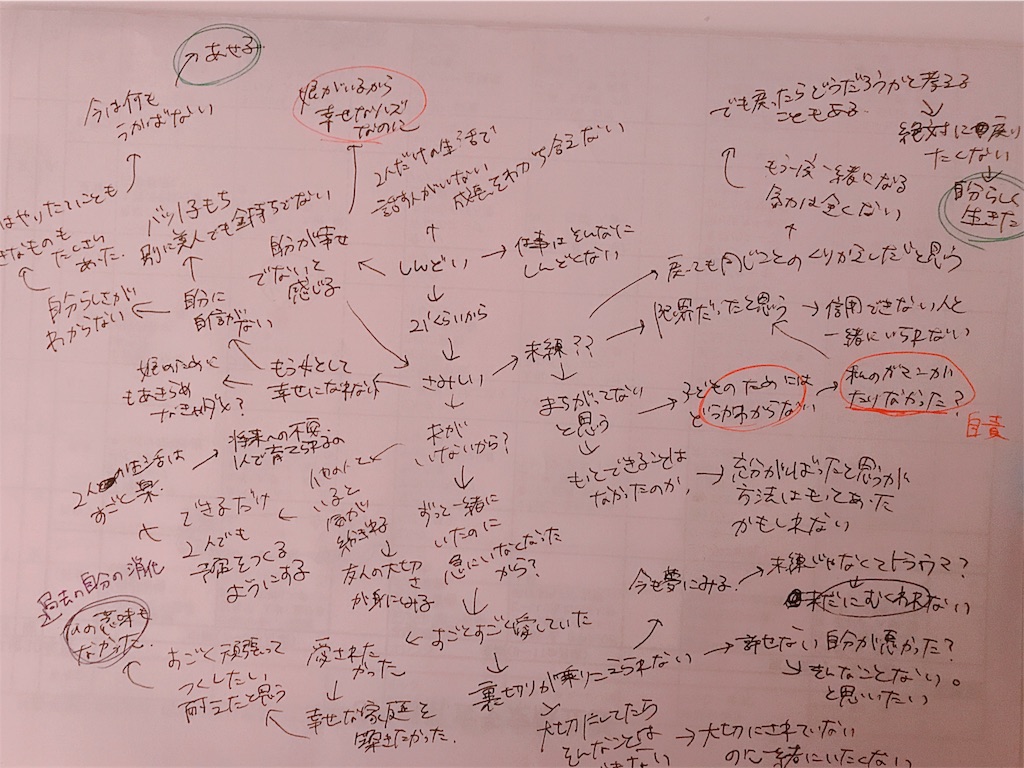 あせる
今は何も
うかばない
娘がいるから
幸せなハズ
なのに
2人だけの生活で
話す人がいない
成長をわかち合えない
でも戻ったらどうだろうかと考える
こともある
絶対に戻り
たくない
自分らしく
生きたい
もう一度一緒になる
気力は全くない
はやりたいことも
きなものも
たくさん
あった
バツ1子もち
別に美人でも金持ちでもない
自分が幸せ
でないと
感じる
しんどい
仕事はそんなに
しんどくない
戻っても同じことのくりかえしだと思う
自分らしさが
わからない
自分に
自信が
ない
2人ぐらいから
限界だったと思う
信用できない人と
一緒にいられない
未練??
さみしい
もう女として
幸せになれない
娘のために
もあきらめ
なきゃダメ?
まちがってない
と思う
子どものためには
どうかわからない
私のガマンが
たりなかった?
自責
将来への不安
1人で育てられるの
2人の生活は
すごく楽
夫が
いないから?
他の人と
いると
気が
紛れる
もっとできることは
なかったのか
充分がんばったと思うが
方法はもっとあった
かもしれない
できるだけ
2人でも
予定をつくる
ようにする
ずっと一緒に
いたのに
急にいなくなった
から?
友人の大切さ
が身にしみる
今も夢にみる
未練じゃなくてトラウマ?
未だにむくわれない
過去の自分の消化
何の意味も
なかった
すごく頑張って
つくしたし
耐えたと思う
愛された
かった
すごくすごく愛していた
幸せな家庭を
築きたかった
裏切りが乗りこえられない
許せない自分が悪かった?
そんなことない。
と思いたい
大切にしてたら
そんなことは
できない
大切にされていない
のに一緒にいたくない